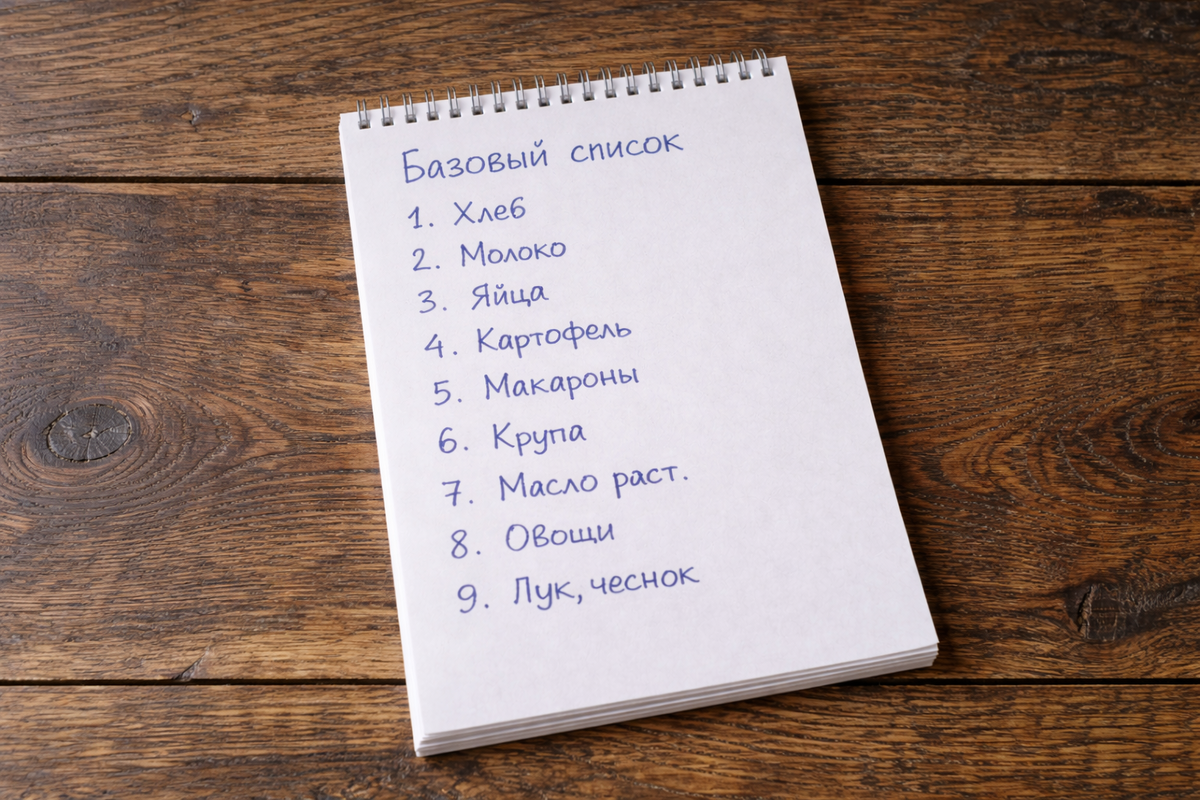 Базовый список
1. Хлеб
2. Молоко
3. Яйца
4. Картофель
5. Макароны
6. Крупа
7. Масло раст.
8. Овощи
9. Лук, чеснок